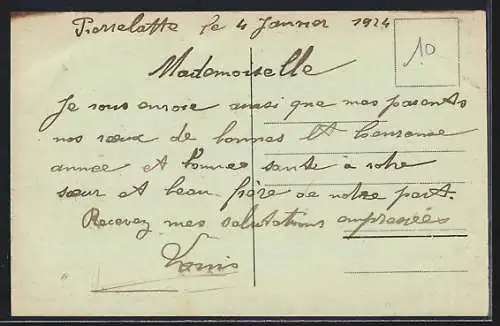 Pierrelatte le 4 Janvier 1924
10
Mademoiselle
Je vous envoie ainsi que mes parents
nos vœux de bonnes et heureuse
année et bonne santé à votre
sœur et beau frère de notre part.
Recevez mes salutations empressées